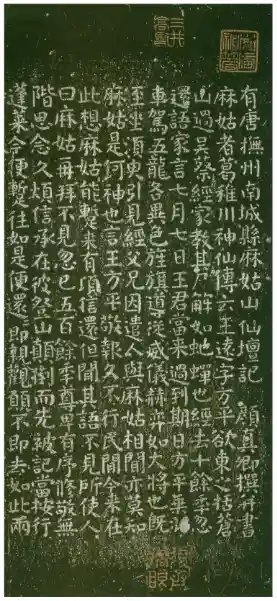 有唐撫州南城縣麻姑山仙壇記 顏真卿撰并書
麻姑者葛稚川神仙傳云王遠字方平欲東之括蒼
山過吳蔡經家教其尸解如虵蟬也經去十餘秊忽
還語家言七月七日王君當来過到期日方平乘
車駕五龍各異色旌旗導從威儀赫弈如大將也既
至坐須臾引見經父兄因遣人與麻姑相聞亦莫知
麻姑是何神也言王方平敬報久不行民間今来在
此想麻姑能蹔来有頃信還但聞其語不見所使人
曰麻姑再拜不見忽已五百餘秊尊卑有序修敬無
階思念久煩信承在彼登山顛倒而先被記當按行
蓬萊今便蹔往如是便還即親觀願不即去如此兩